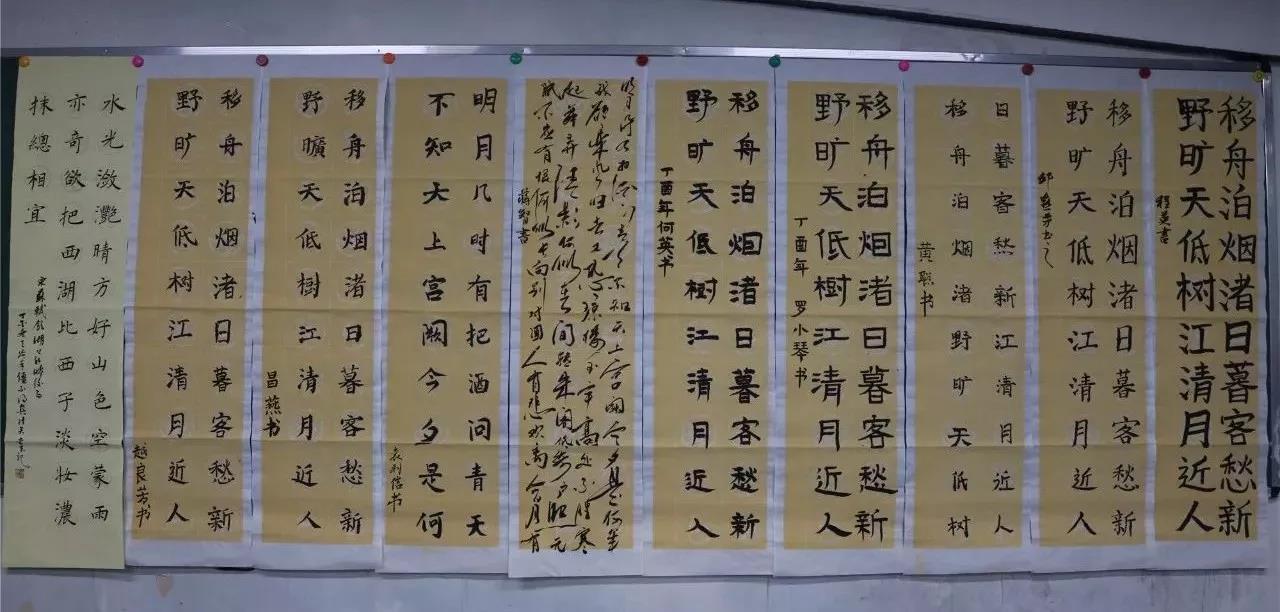 移舟泊烟渚日暮客愁新
野旷天低树江清月近人
移舟泊烟渚日暮客愁新
野旷天低树江清月近人
日暮客愁新江清月近人
移舟泊烟渚野旷天低树
移舟泊烟渚日暮客愁新
野旷天低樹江清月近人
丁酉年 罗小琴书
移舟泊烟渚日暮客愁新
野旷天低樹江清月近人
丁酉年何英书
不知天上宫阙今夕是何年
我欲乘风归去又恐琼楼玉宇高处不胜寒
起舞弄清影何似在人间转朱阁低绮户照无
眠不应有恨何事长向别时圆人有悲欢离合月有
明月几时有把酒问青天
不知天上宫阙今夕是何
袁利信书
移舟泊烟渚日暮客愁新
野曠天低樹江清月近人
昌燕书
移舟泊烟渚日暮客愁新
野旷天低树江清月近人
赵良芳书
水光潋灧晴方好山色空蒙雨
亦奇欲把西湖比西子淡妝濃
抹總相宜